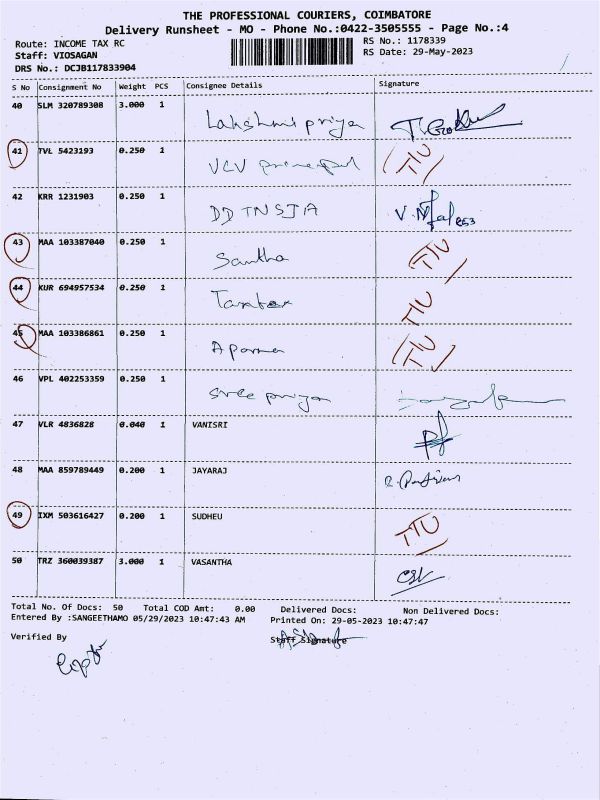 THE PROFESSIONAL COURIERS, COIMBATORE
Delivery Runsheet - MO - Phone No.:0422-3505555 - Page No.:4
Route: INCOME TAX RC
RS No.: 1178339
Staff: VIOSAGAN
RS Date: 29-May-2023
DRS No.: DCJB117833904
S No Consignment No Weight PCS Consignee Details Signature
40 SLM 320789308 3.000 1 Lakshmi priya
41 TVL 5423193 0.250 1 VCV principal TTU
42 KRR 1231903 0.250 1 DD TNSJA
43 MAA 103387040 0.250 1 Santha TTU
44 KUR 694957534 0.250 1 TTU
45 MAA 103386861 0.250 1 Aparna TTU
46 VPL 402253359 0.250 1 sree priya
47 VLR 4836828 0.040 1 VANISRI
48 MAA 859789449 0.200 1 JAYARAJ
49 IXM 503616427 0.200 1 SUDHEU TTU
50 TRZ 360039387 3.000 1 VASANTHA
Total No. Of Docs: 50 Total COD Amt: 0.00 Delivered Docs: Non Delivered Docs:
Entered By :SANGEETHAMO 05/29/2023 10:47:43 AM Printed On: 29-05-2023 10:47:47
Verified By Staff Signature